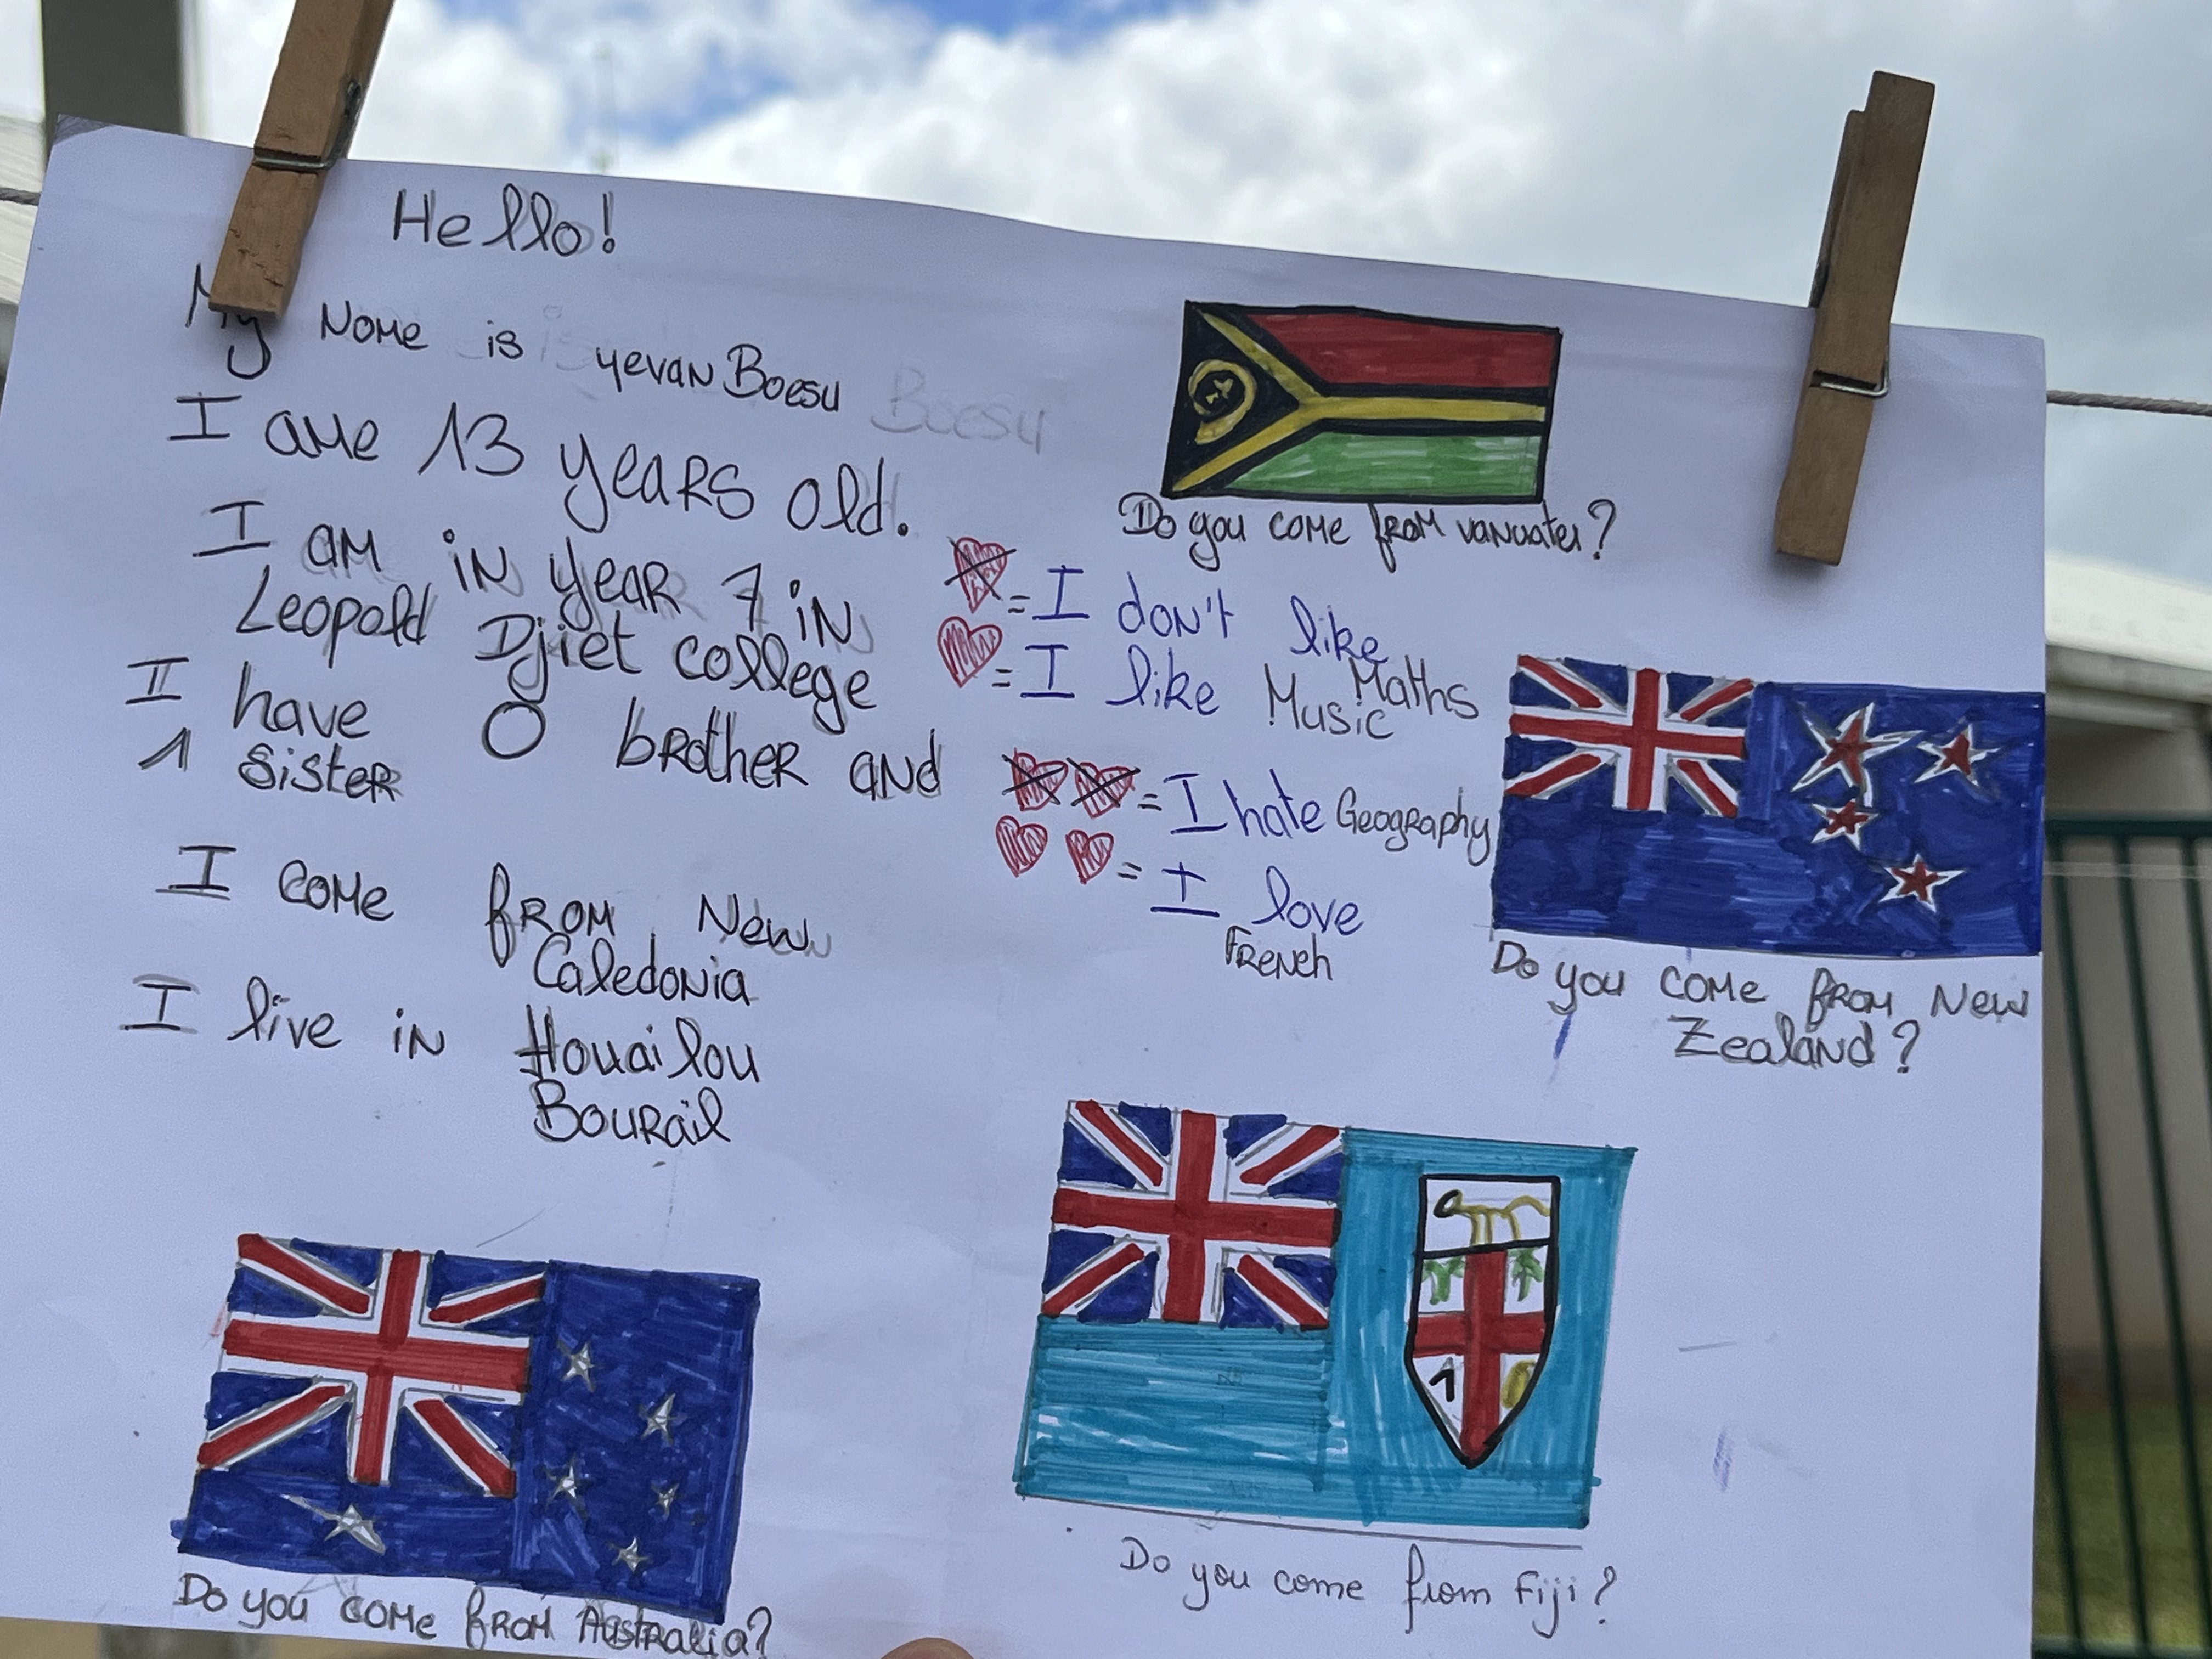 Hello!
My Name is yevan Boesu
I ame 13 years old.
I am in year 7 in
Leopold Djiet college
I have 0 brother and
1 sister
I come from New
Caledonia
I live in Houailou
Bourail
Do you come from vanuatu?
= I don't like
Maths
= I like Music
= I hate Geography
= I love
French
Do you come from New
Zealand?
Do you come from Australia?
Do you come from Fiji?